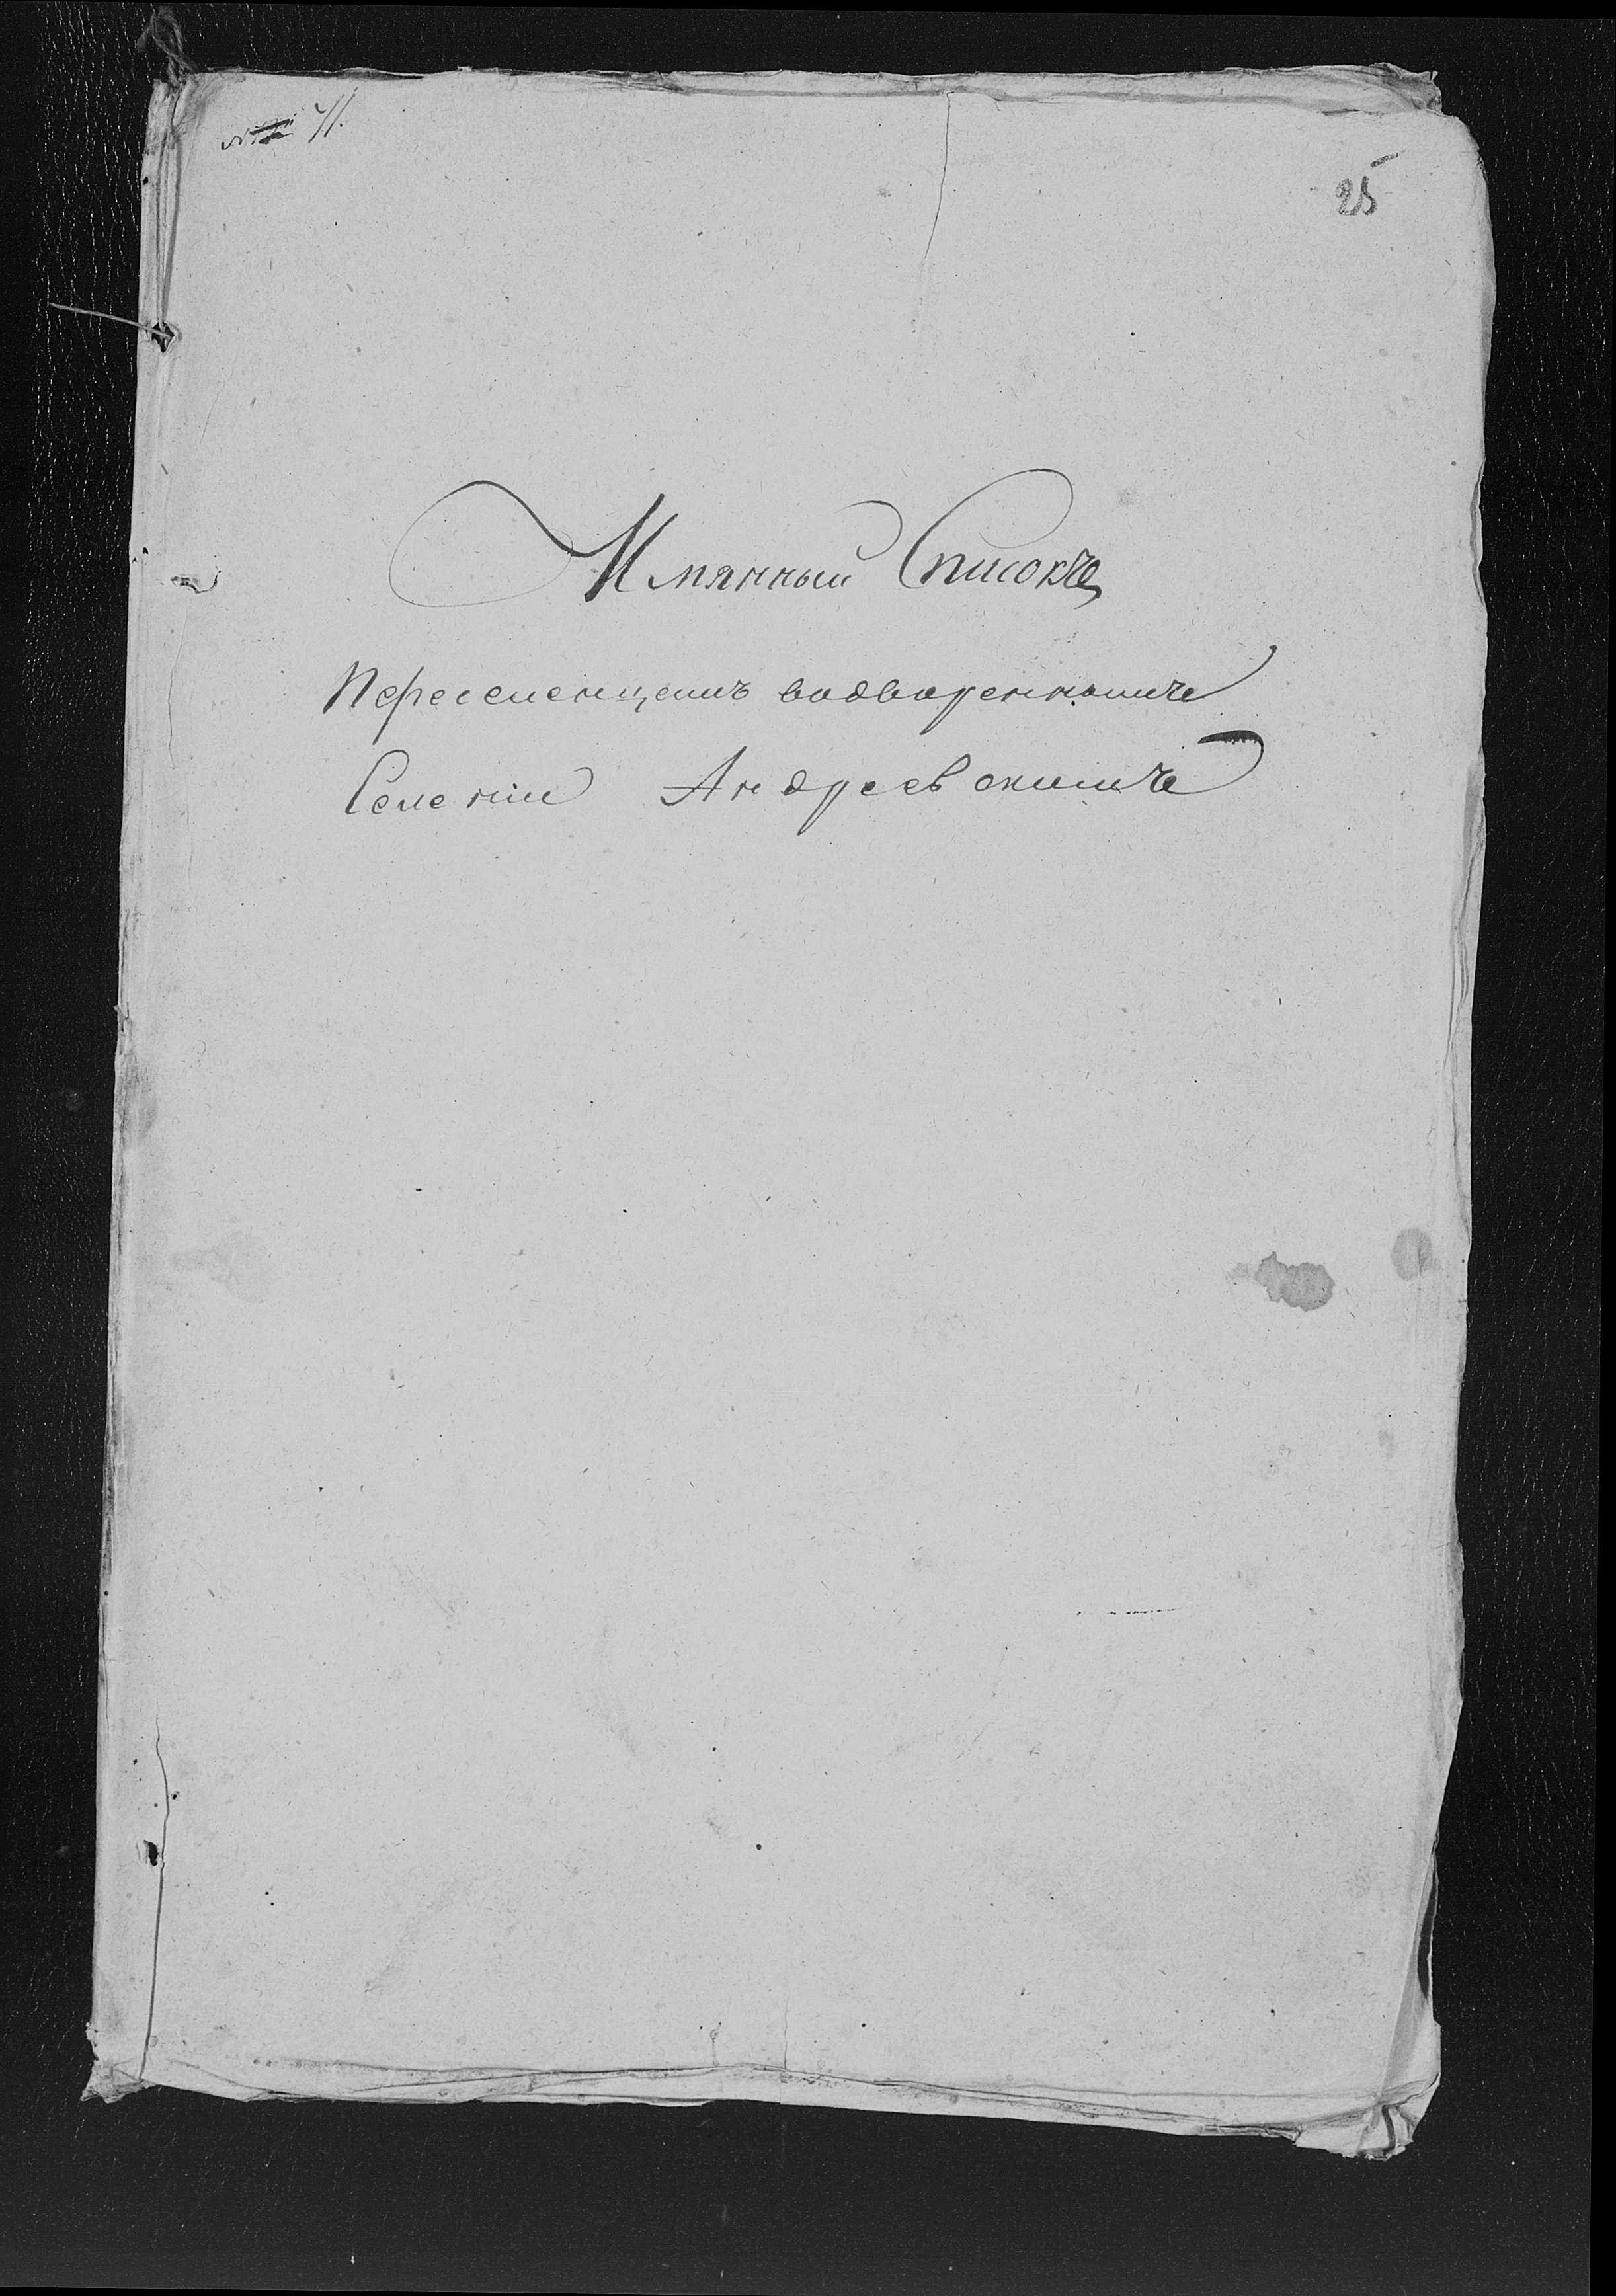 41.
25
Имянный Списокъ
Переселенцамъ водвореннымъ
Селеніи Андреевскимъ